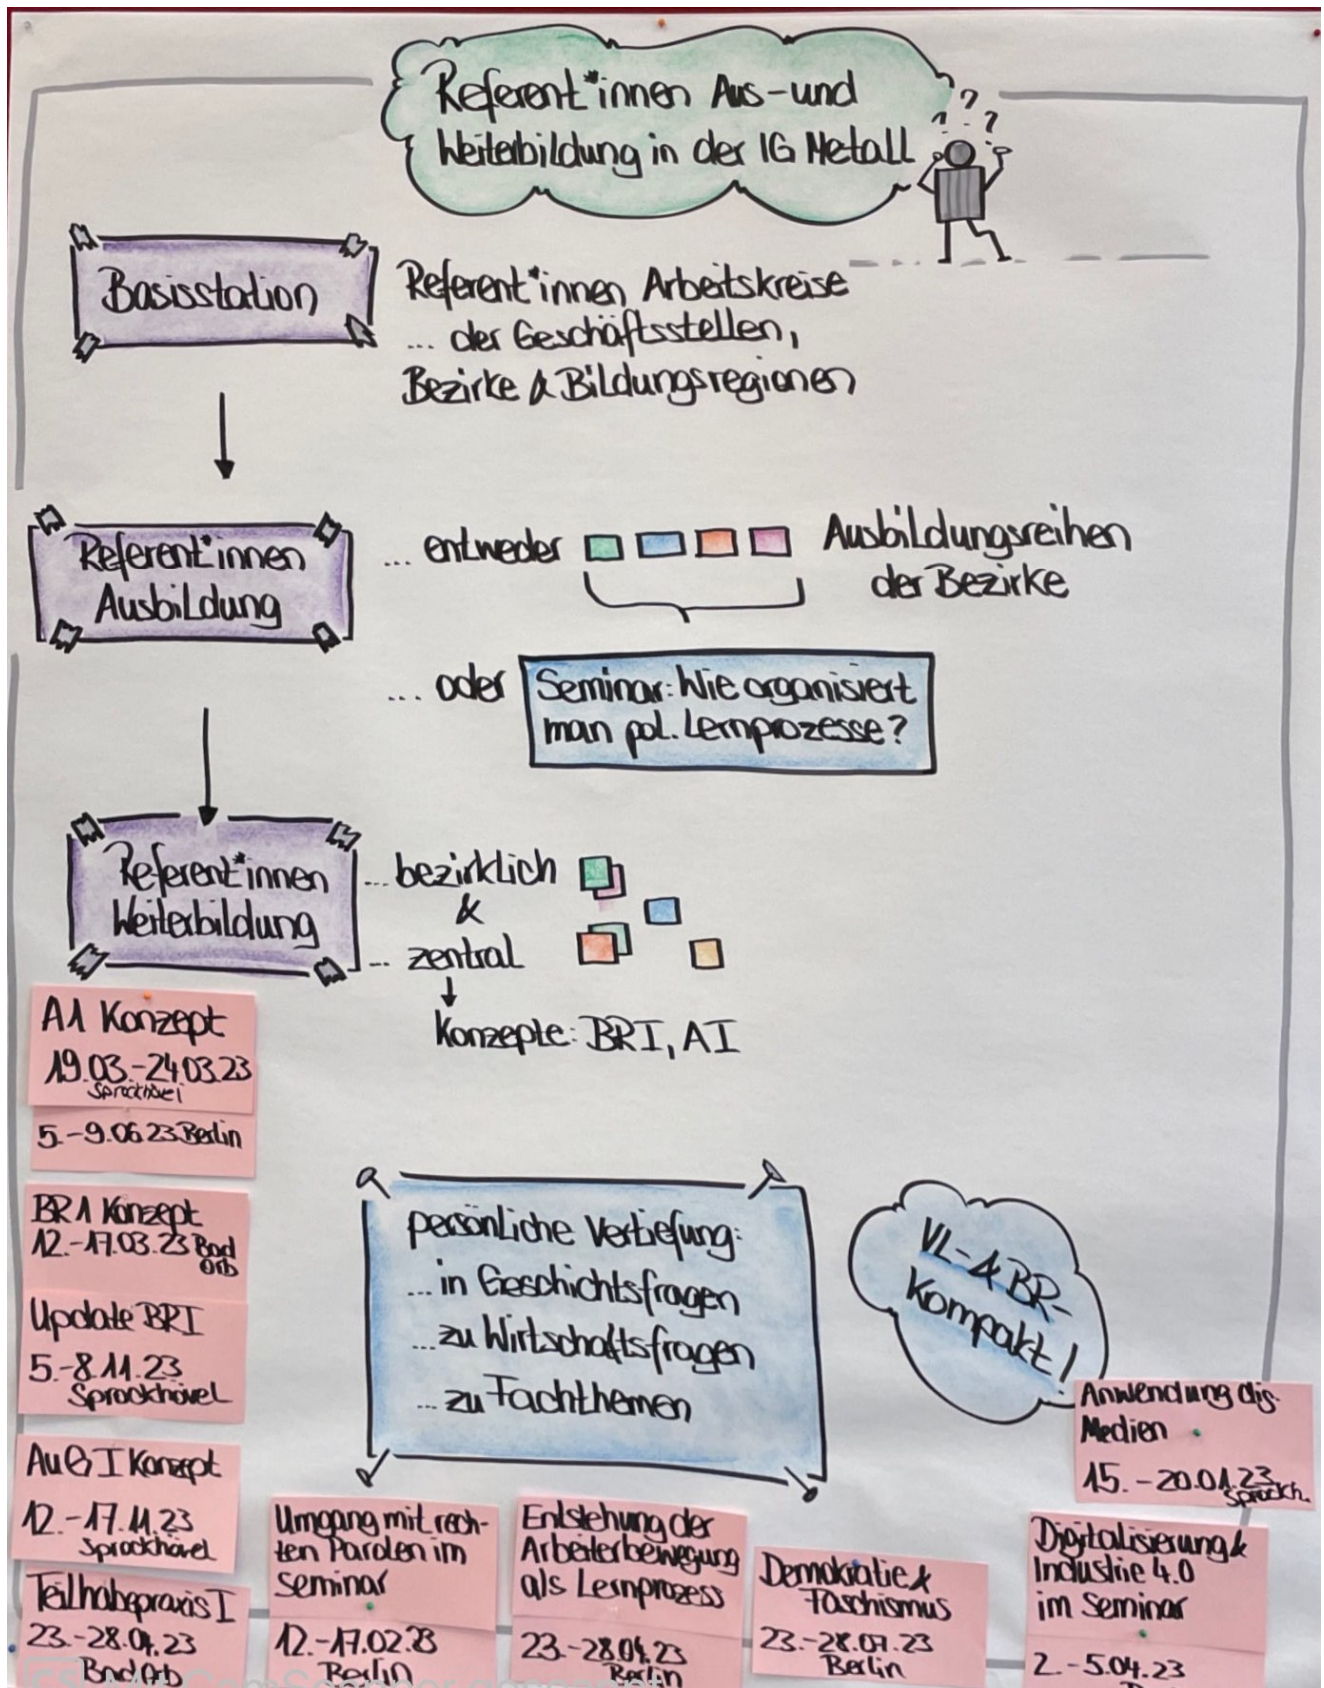 Referent*innen Aus- und
Weiterbildung in der IG Metall
? ? ?
Basisstation
Referent*innen Arbeitskreise
... der Geschäftsstellen,
Bezirke & Bildungsregionen
Referent*innen
Ausbildung
... entweder
Ausbildungsreihen
der Bezirke
... oder
Seminar: Wie organisiert
man pol. Lernprozesse?
Referent*innen
Weiterbildung
... bezirklich
&
... zentral
Konzepte: BRI, AI
A1 Konzept
19.03.-24.03.23
Sprockhövel
5.-9.06.23 Berlin
BR1 Konzept
12.-17.03.23 Bad
Orb
Update BRI
5.-8.11.23
Sprockhövel
AuG I Konzept
12.-17.11.23
Sprockhövel
Teilhabepraxis I
23.-28.04.23
Bad Orb
persönliche Vertiefung:
... in Geschichtsfragen
... zu Wirtschaftsfragen
... zu Fachthemen
VL- & BR-
Kompakt!
Umgang mit rech-
ten Parolen im
Seminar
12.-17.02.23
Berlin
Entstehung der
Arbeiterbewegung
als Lernprozess
23.-28.04.23
Berlin
Demokratie &
Faschismus
23.-28.07.23
Berlin
Anwendung dig.
Medien
15.-20.01.23
Sprockh.
Digitalisierung &
Industrie 4.0
im Seminar
2.-5.04.23
CS